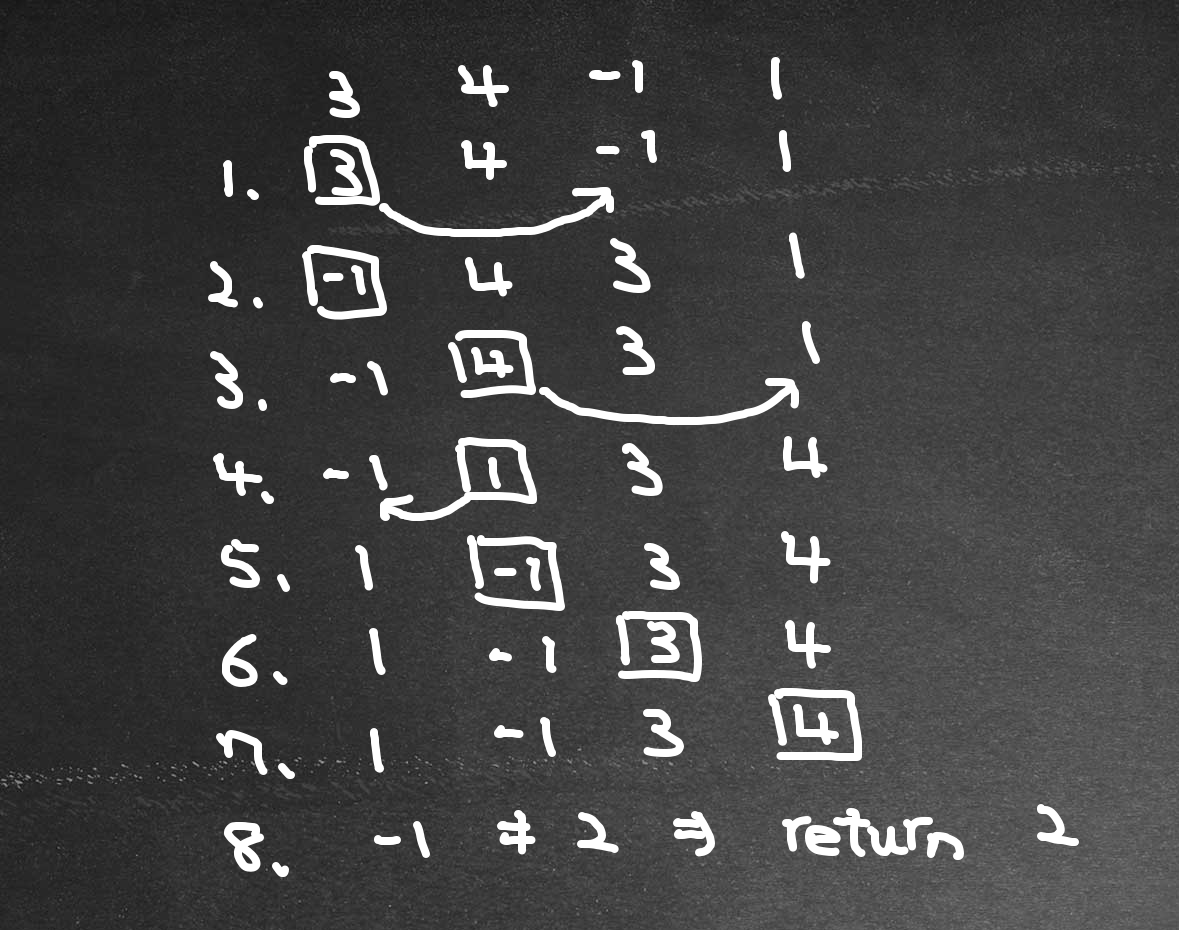 3 4 -1 1
1. 3 4 -1 1
2. -1 4 3 1
3. -1 4 3 1
4. -1 1 3 4
5. 1 -1 3 4
6. 1 -1 3 4
7. 1 -1 3 4
8. -1 ≠ 2 ⇒ return 2